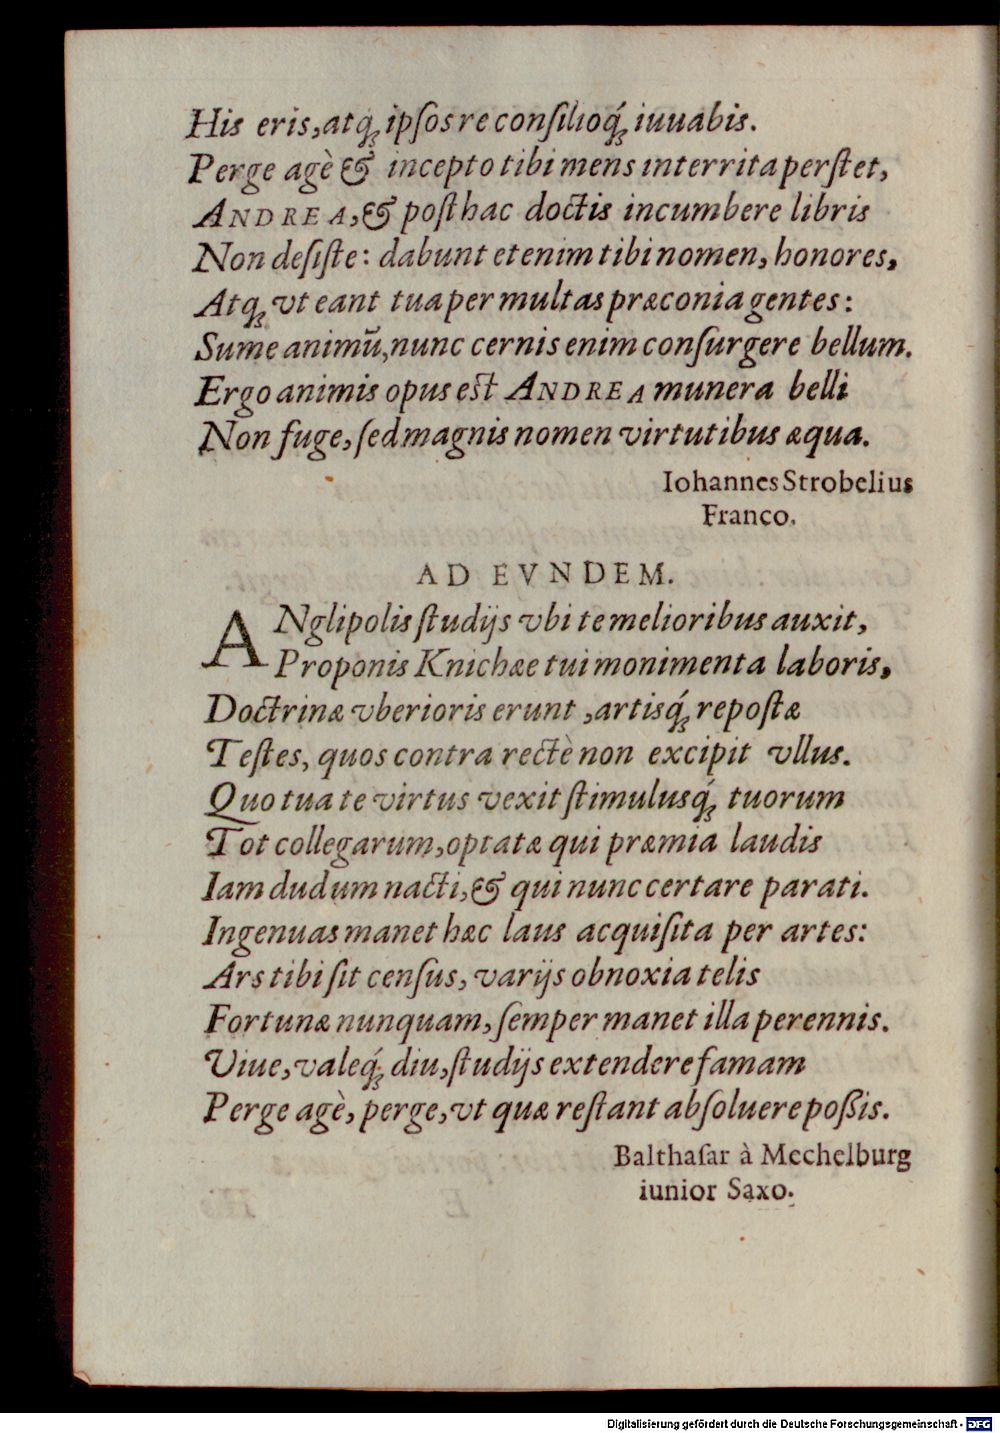 His eris, atq́ꝫ ipſos re conſilioq́ꝫ iuuabis.
Perge agè & incepto tibi mens interrita perſtet,
ANDREA, & poſthac doctis incumbere libris
Non deſiſte: dabunt etenim tibi nomen, honores,
Atqꝫ vt eant tua per multas præconia gentes:
Sume animũ, nunc cernis enim conſurgere bellum.
Ergo animis opus est ANDREA munera belli
Non fuge, ſed magnis nomen virtutibus æqua.
Iohannes Strobelius
Franco.
AD EVNDEM.
ANglipolis ſtudijs vbi te melioribus auxit,
Proponis Knichæ tui monimenta laboris,
Doctrinæ vberioris erunt, artisq́ꝫ repoſtæ
Teſtes, quos contra rectè non excipit vllus.
Quo tua te virtus vexit ſtimulusq́ꝫ tuorum
Tot collegarum, optatæ qui præmia laudis
Iam dudum nacti, & qui nunc certare parati.
Ingenuas manet hæc laus acquiſita per artes:
Ars tibi ſit cenſus, varijs obnoxia telis
Fortunæ nunquam, ſemper manet illa perennis.
Viue, valeq́ꝫ diu, ſtudijs extendere famam
Perge agè, perge, vt quæ reſtant abſoluere poßis.
Balthaſar à Mechelburg
iunior Saxo.
Digitalisierung gefördert durch die Deutsche Forschungsgemeinschaft - DFG